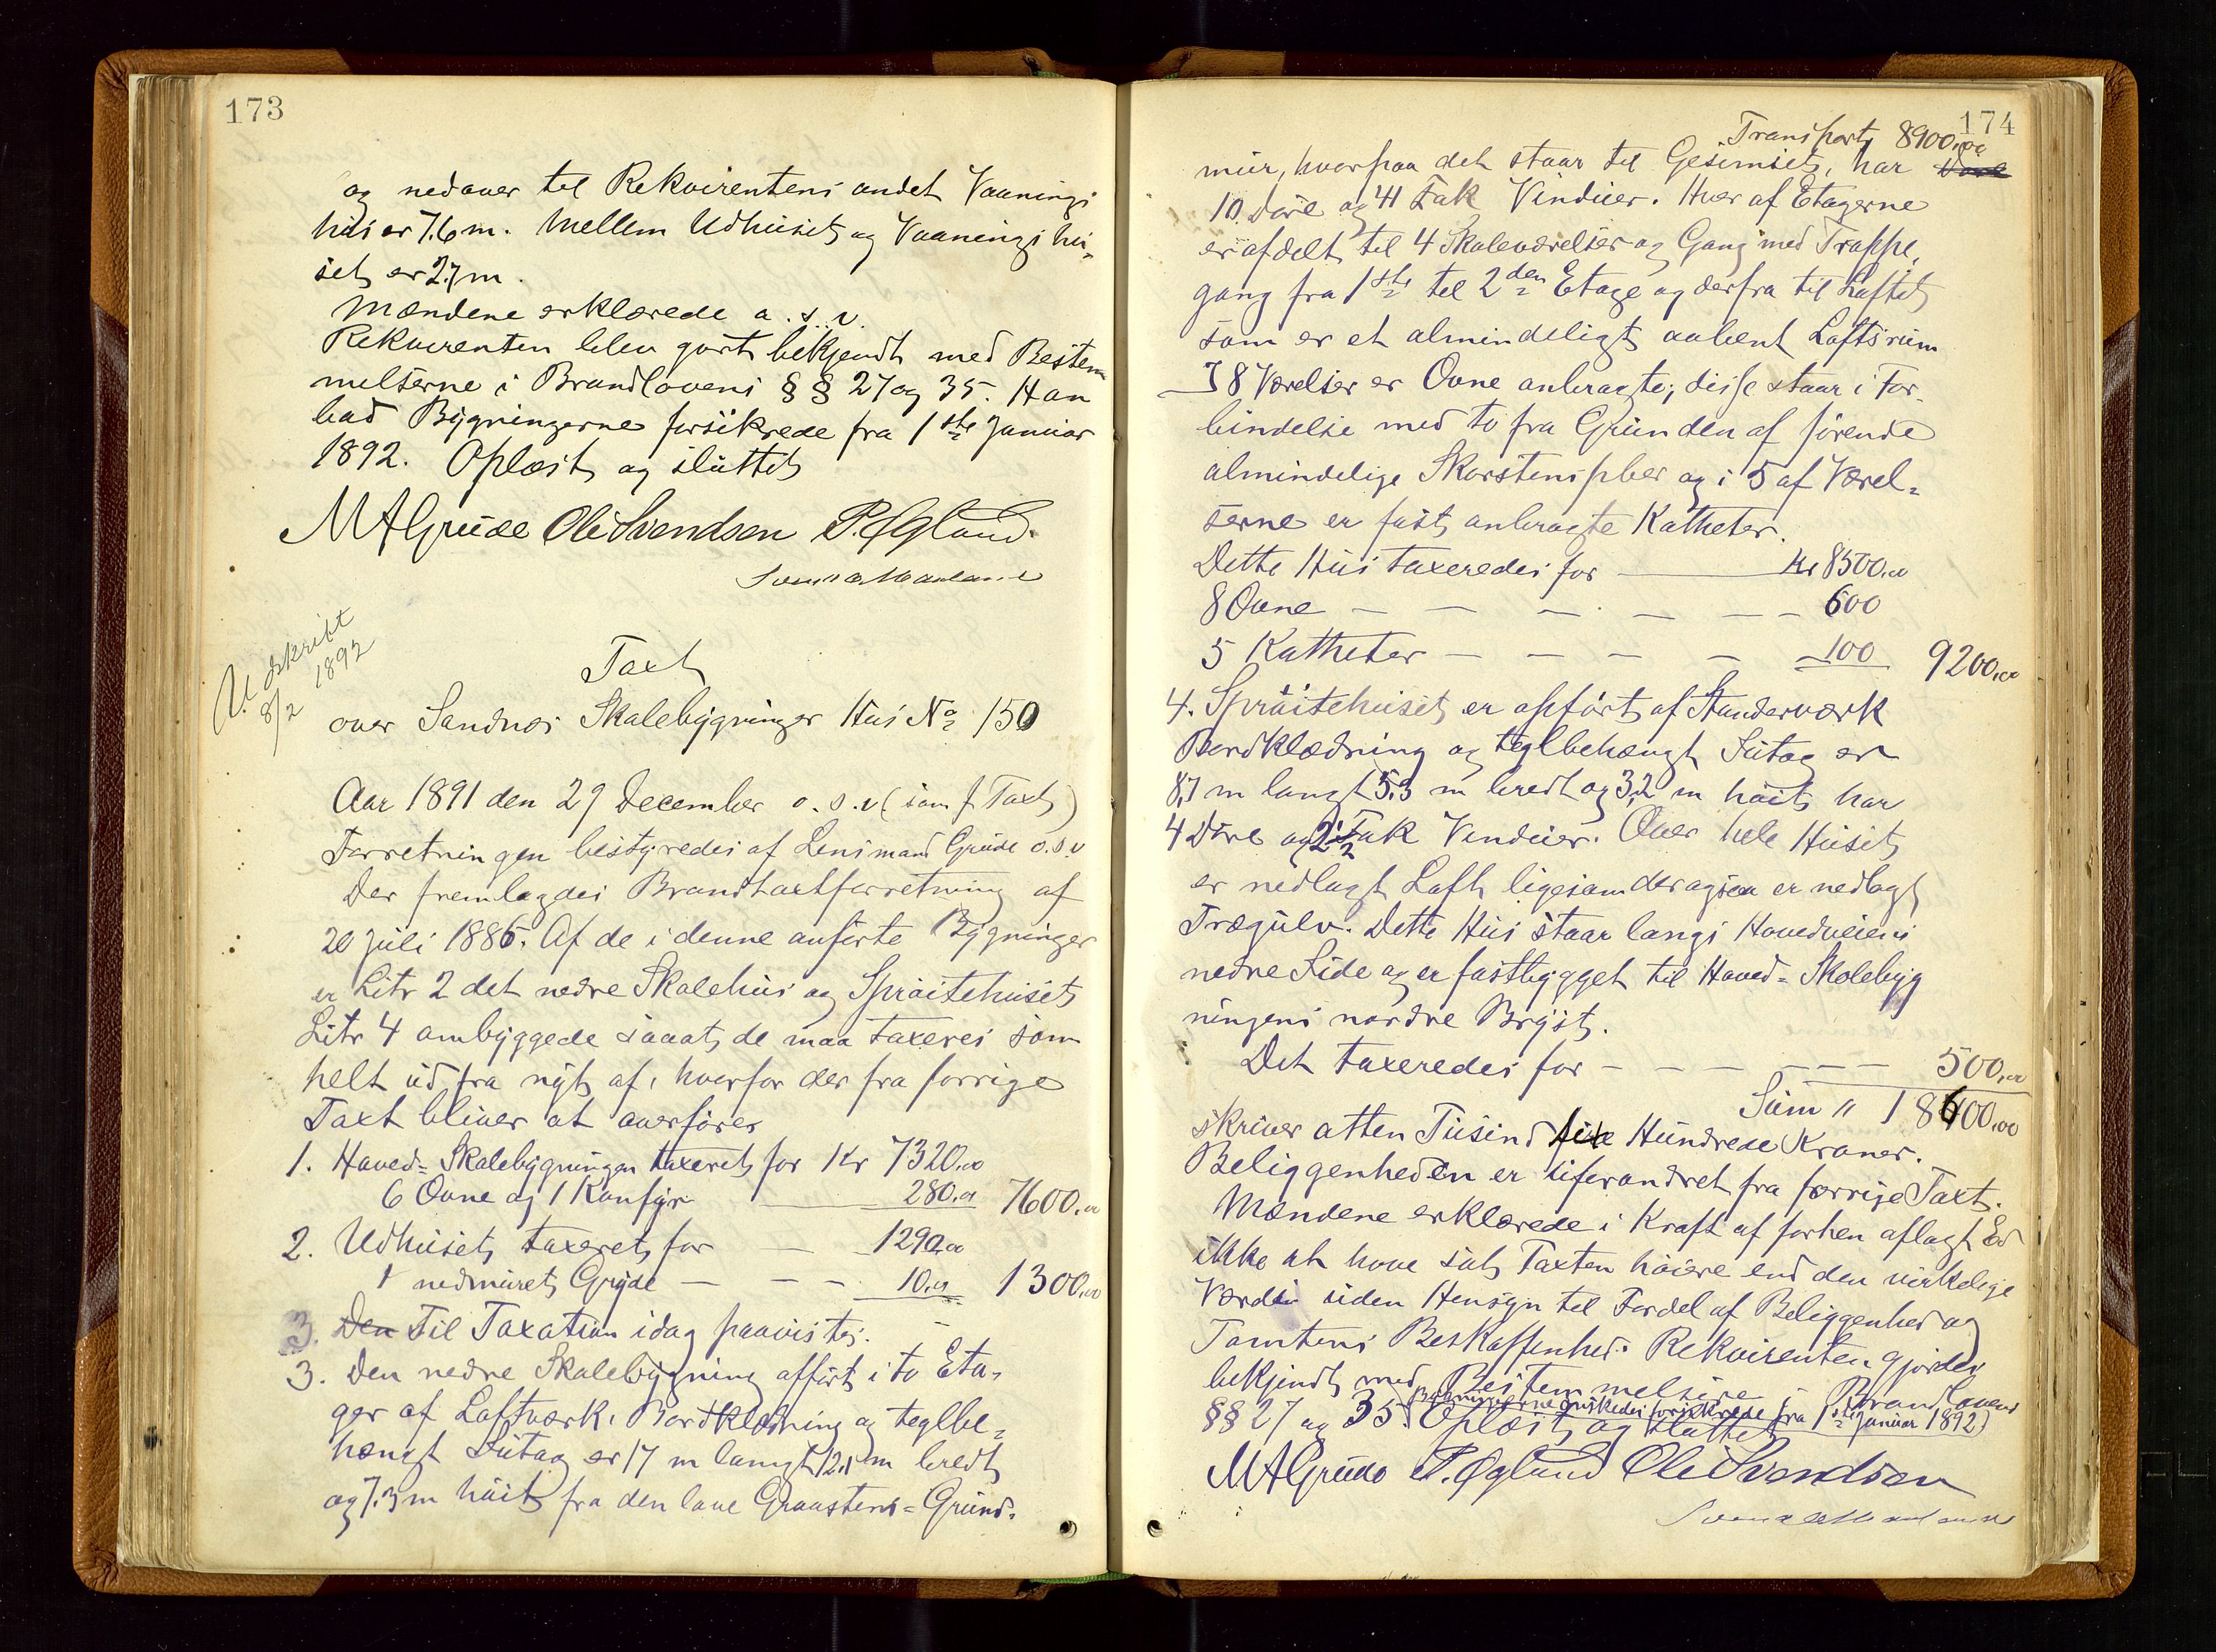 173
og nedover til Rekvirentens andet Vaanings
hus er 7.6 m. Mellem Udhuset og Vaaningshu-
set er 2.7 m.
Mændene erklærede o. s. v.
Rekvirenten blev gjort bekjendt med Bestem
melserne i Brandlovens §§ 27 og 35. Han
bad Bygningerne forsikrede fra 1ste Januar
1892. Oplæst og sluttet
M A Grude Ole Svendsen P. Øglænd.
Udskrift
8/2 1892
Taxt
over Sandnes Skolebygninger Hus No 150
Aar 1891 den 29 December o. s. v (som f. Taxt)
Forretningen bestyredes af Lensmand Grude o.s.v
Der fremlagdes Brandtaxtforretning af
20 Juli 1886. Af de i denne anførte Bygninger
er Litr 2 det nedre Skolehus og Sprøitehuset
Litr 4 ombyggede saaat de maa taxeres som
helt ud fra nyt af, hvorfor der fra forrige
Taxt bliver at overføres
1. Hoved-Skolebygningen taxeret for Kr 7320,00
6 Ovne og 1 Komfyr 280,00 7600,00
2. Udhuset taxeret for — 1290,00
1 nedmuret Gryde — — — 10,00 1300,00
3. Den Til Taxation idag paavistes.
3. Den nedre Skolebygning opført i to Eta-
ger af Loftværk, Bordklædning og teglbe-
hængt Sutag er 17 m langt 12,1 m bredt
og 7.3 m høit fra den lave Graastens-Grund-
174
Transport 8900,00
mur, hvorpaa det staar til Gesimset, har
10 Døre og 41 Fak Vinduer. Hver af Etagerne
er afdelt til 4 Skoleværelser og Gang med Trappe,
gang fra 1ste til 2den Etage og derfra til Loftet
som er et almindeligt aabent Loftsrum
I 8 Værelser er Ovne anbragte; disse staar i For-
bindelse med to fra Grunden af førende
almindelige Skorstenspiber og i 5 af Værel-
serne er fast anbragte Katheter.
Dette Hus taxeredes for — Kr 8500,00
8 Ovne — — — — — — 600
5 Katheter — — — — 100 9200,00
4. Sprøitehuset er opført af Standerværk
Bordklædning og teglbehængt Sutag er
8,7 m langt 5,5 m bredt og 3,2 m høit har
4 Døre og 2 1/2 Fak Vinduer. Over hele Huset
er nedlagt Loft ligesom der ogsaa er nedlagt
Trægulv. Dette Hus staar langs Hovedveiens
nedre Side og er fastbygget til Hoved-Skolebyg
ningens nordre Bryst.
Det taxeredes for — — — — — — 500,00
Sum " 18600,00
skriver atten Tusind Hundrede Kroner.
Beliggenheden er uforandret fra forrige Taxt.
Mændene erklærede i Kraft af forhen aflagt Ed
ikke at have sat Taxten høiere end den virkelige
Værdi uden Hensyn til Fordel af Beliggenhed og
Tomtens Beskaffenhed. Rekvirenten gjordes
bekjendt med Bestemmelserne i Brandlovens
Bygningerne ønskedes forsikrede fra 1ste Januar 1892)
§§ 27 og 35. Oplæst og sluttet
M A Grude P. Øglænd Ole Svendsen